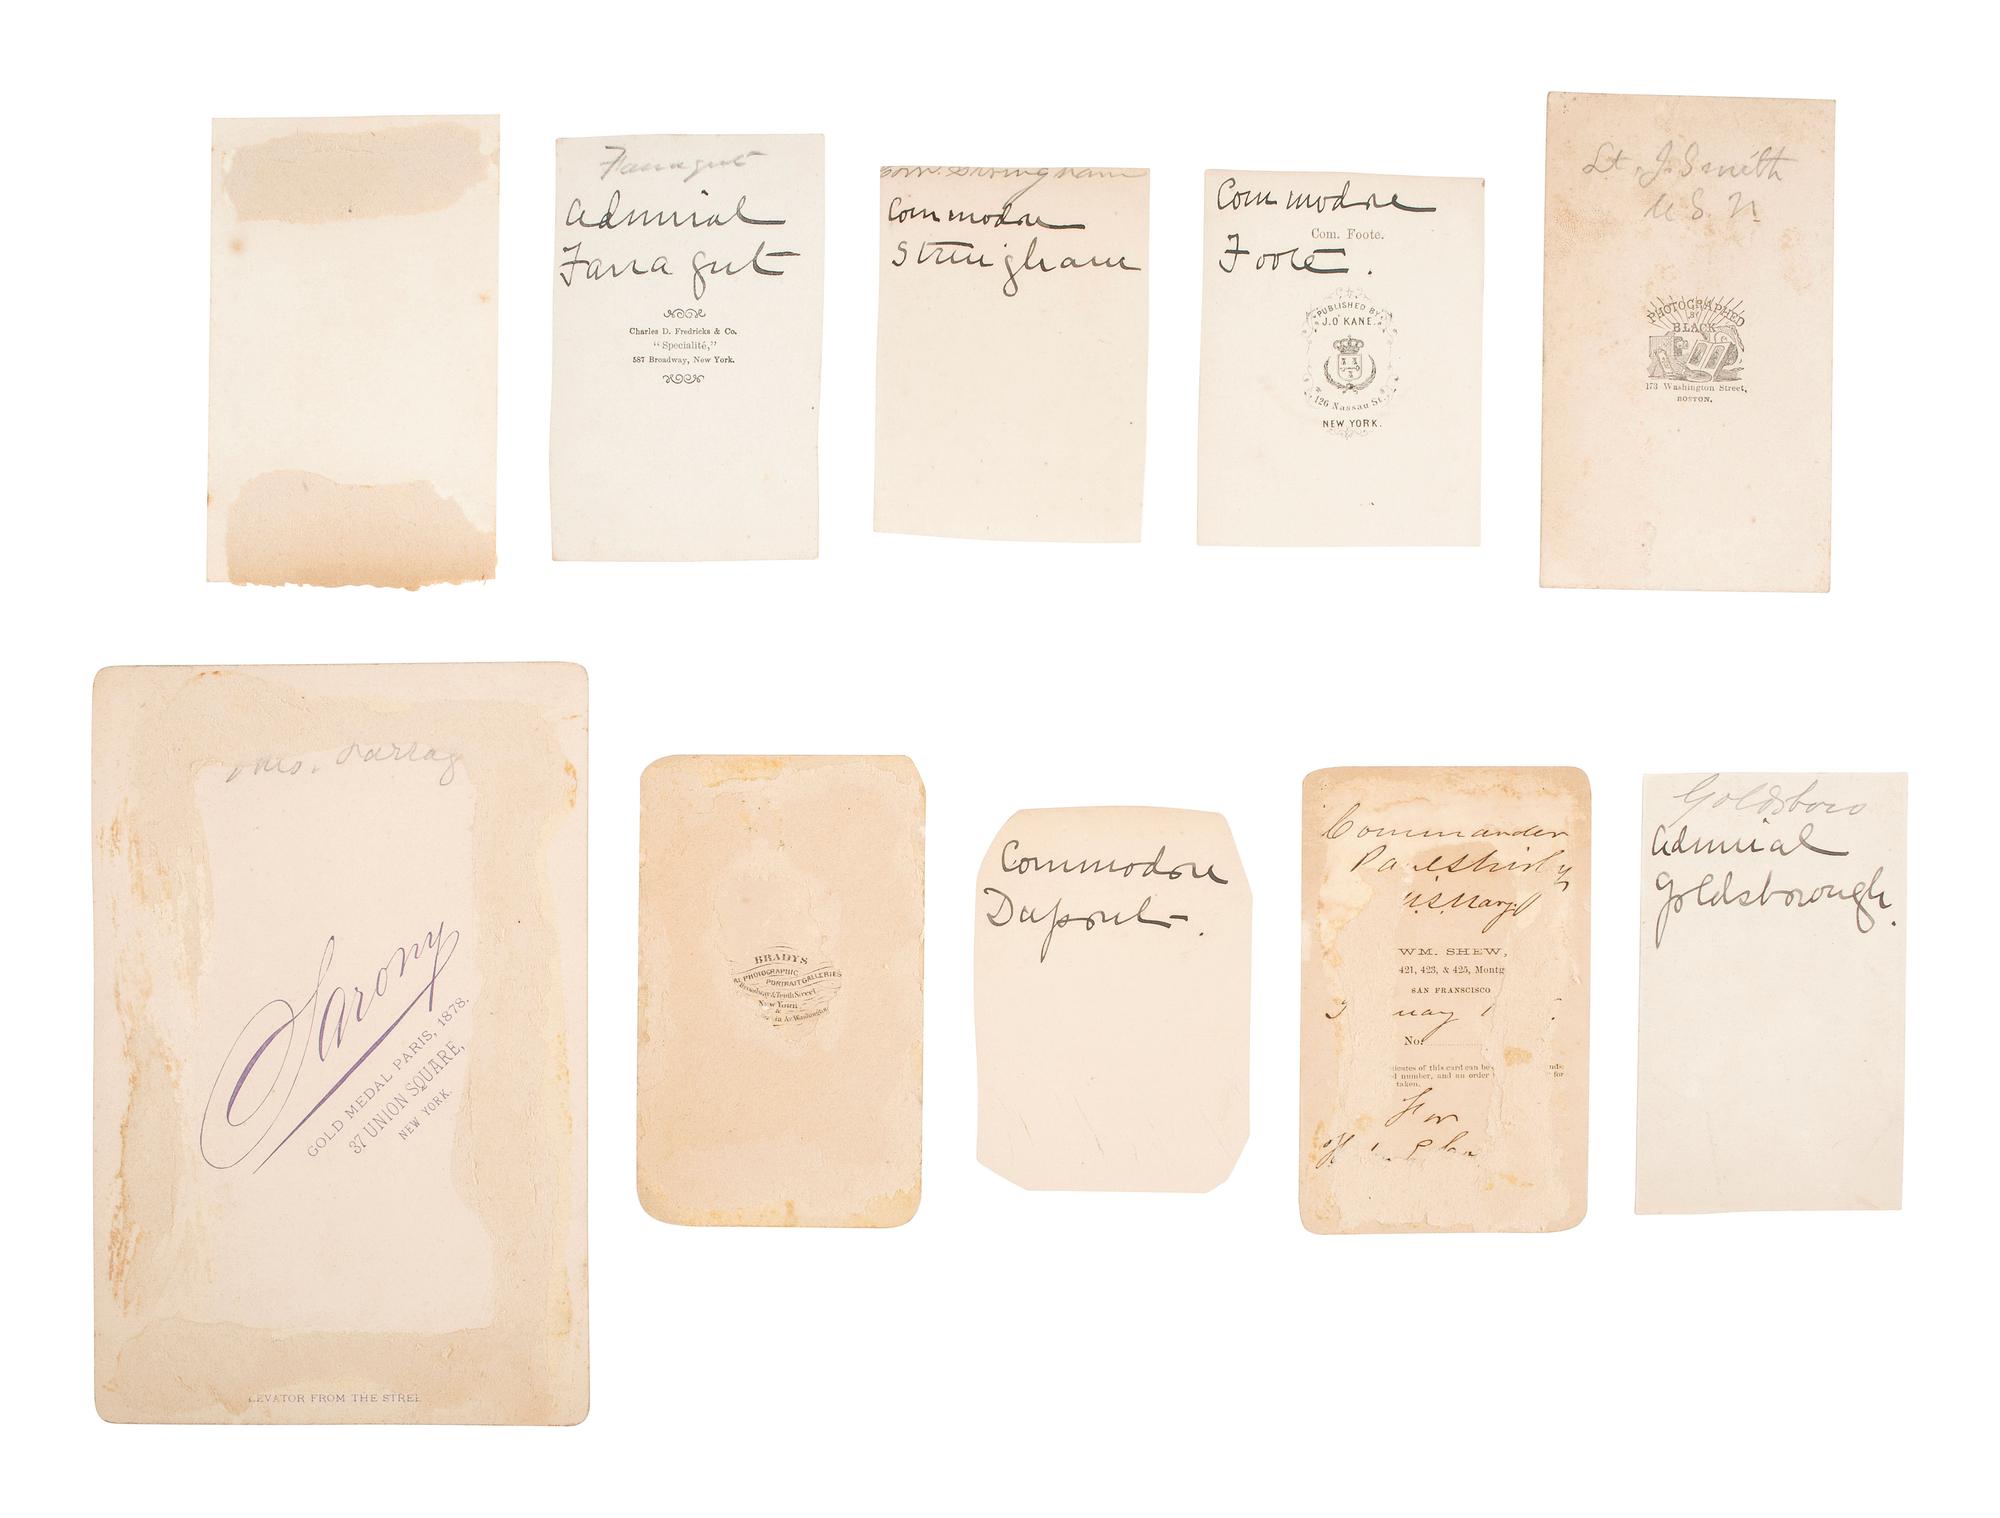 Farragut
Admiral
Farragut
Charles D. Fredricks & Co.
"Specialité,"
587 Broadway, New York.
Com. Stringham
Commodore
Stringham
Commodore
Com. Foote.
Foote.
PUBLISHED BY
J. O'KANE.
126 Nassau St.
NEW YORK.
Lt. J. Smith
U. S. N.
PHOTOGRAPHED
BY
BLACK
173 Washington Street,
BOSTON.
Mrs. Farrag
Sarony
GOLD MEDAL PARIS, 1878.
37 UNION SQUARE,
NEW YORK.
LEVATOR FROM THE STREE
BRADYS
PHOTOGRAPHIC
PORTRAIT GALLERIES
Broadway & Tenth Street
New York
&
Av. Washington
Commodore
Dupont.
Commander
U.S. Navy
WM. SHEW,
421, 423, & 425, Montg
SAN FRANSCISCO
No.
icates of this card can be
number, and an order for
taken.
For
Goldsboro
Admiral
Goldsborough.